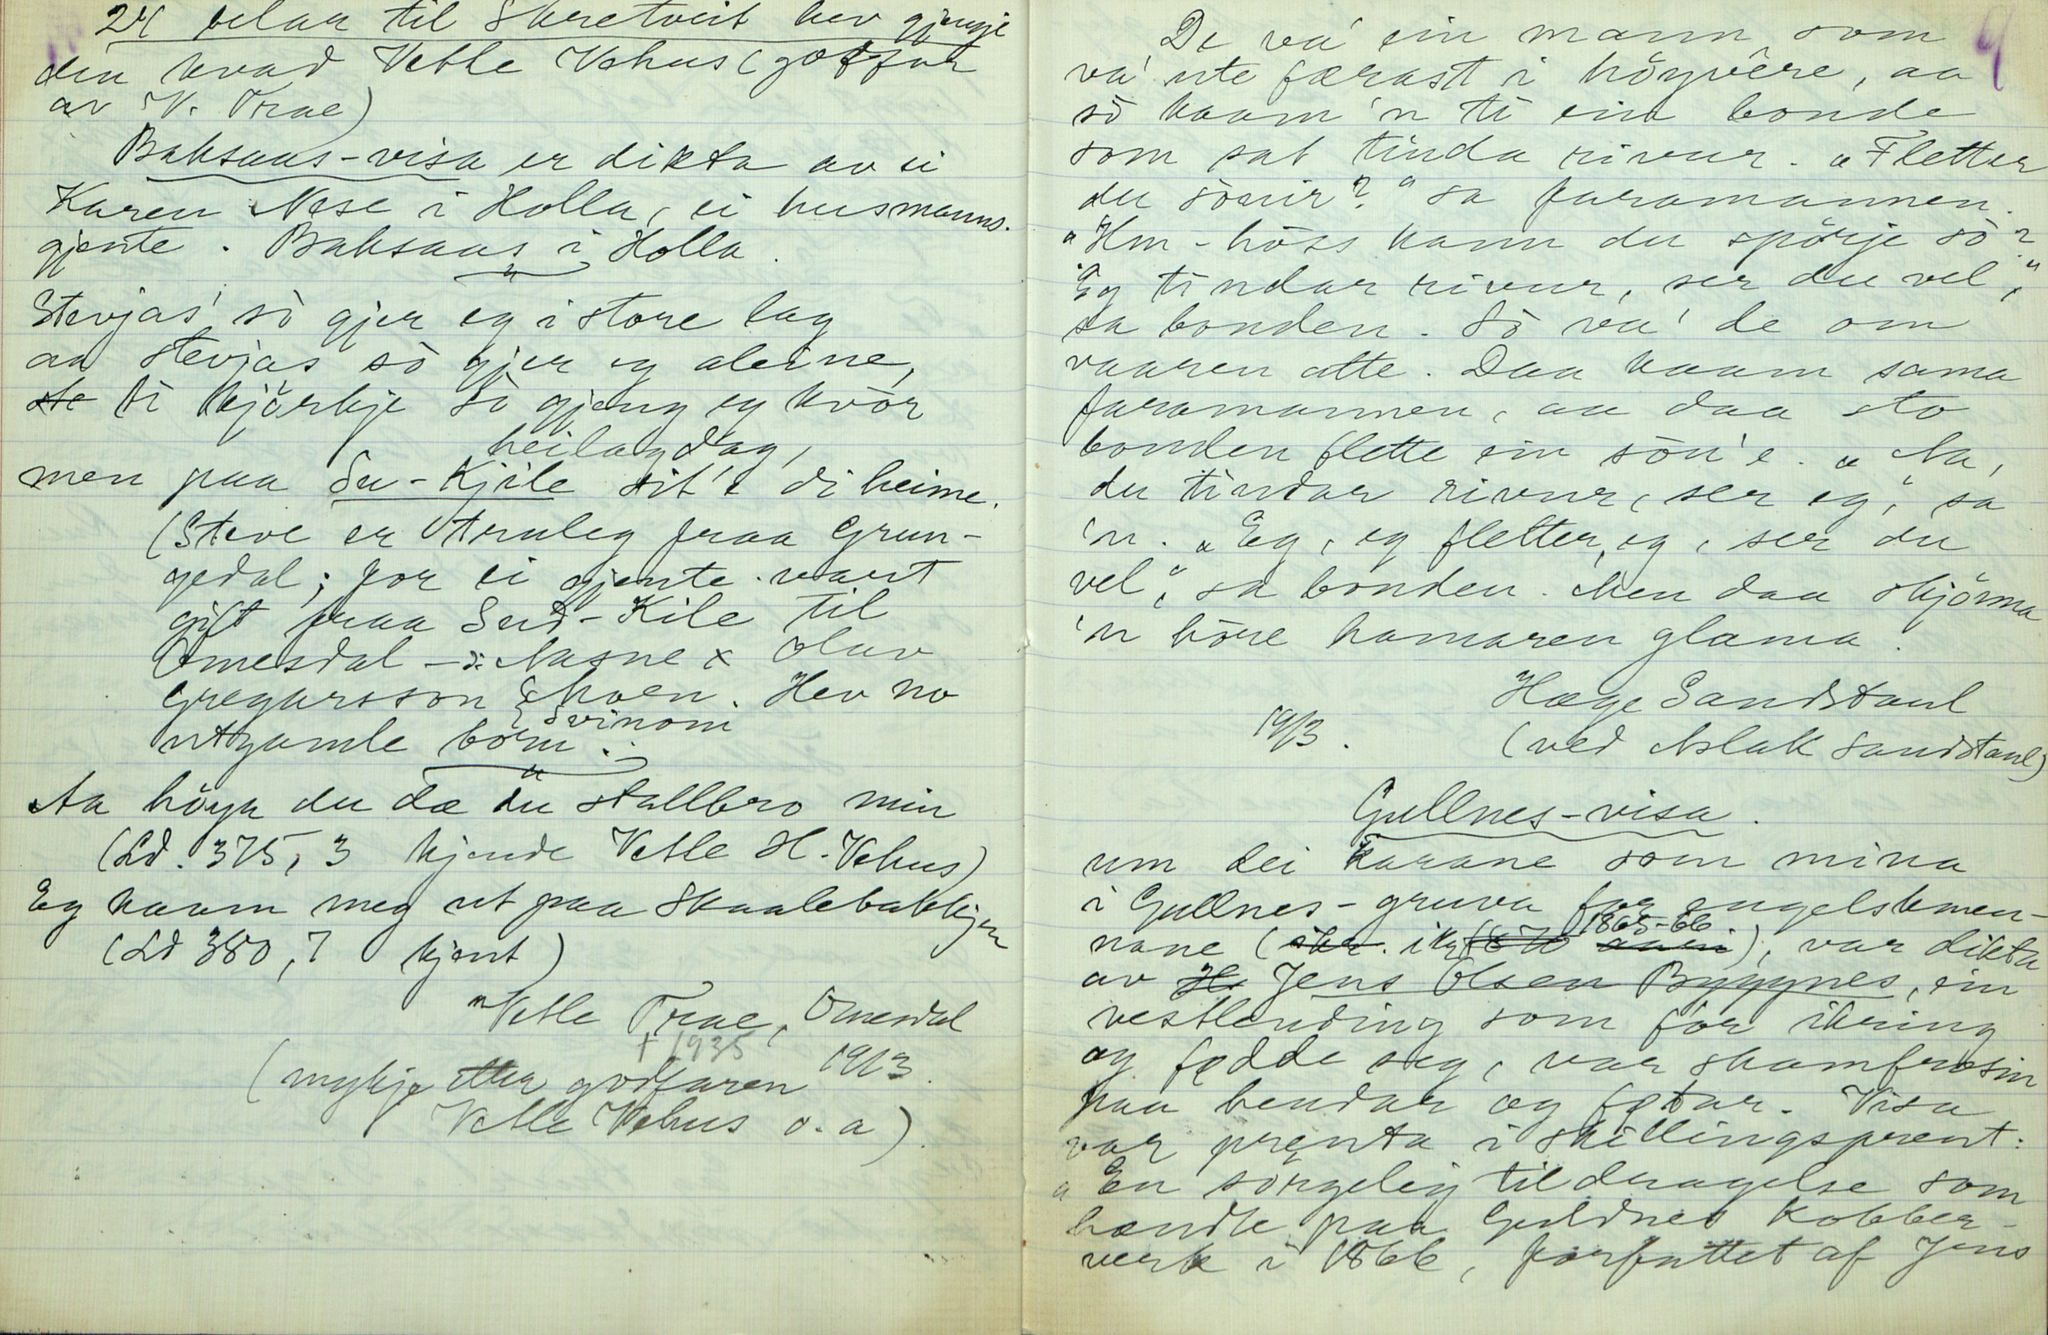 24 belar til Skretveit hev gjengje
din kvad Vetle Vehus (goffar
av V. Trae)
Baksaas-visa er dikta av ei
Karen Nese i Holla, ei husmanns-
gjente. Baksaas i Holla.
Stevjas' sò gjer eg i store lag
aa stevjas sò gjer eg aleine,
ti kjörkje sò gjeng eg kvòr
heilag dag,
men paa Su-Kjile sit'e di heime.
(Steve er truleg fraa Grun-
gedal; for ei gjente vart
gift fraa Sud-Kile til
Omesdal - Aasne x Olav
Gregarsson Moen. Hev no
Svinom
utgamle born.
Aa höyr du dæ du stallbro min
(Ld. 375, 3 kjende Vetle H. Vehus)
Eg kaam meg ut paa Skaalebakkjen
(Ld 380, 7 kjent)
Vetle Trae, Omesdal
† 1935
(mykje etter godfaren 1913.
Vetle Vehus o. a).
De va' ein mann som
va' ute færast i höyvêre, aa
sò kaam 'n ti ein bonde
som sat tinda rivur. "Fletter
du sònir?" sa faramannen.
"Hm - höss kann du spörje sò?
Eg tindar rivur, ser du vel",
sa bonden. Sò va' de om
vaaren atte. Daa kaam sama
faramannen, aa daa sto
bonden flette ein sòn'e. "Aa,
du tindar rivur, ser eg", sa
'n. "Eg, eg fletter, eg, ser du
vel", sa bonden. Men daa skjöna
'n höre hamaren glama.
Hæge Sandstaul
1913. (ved Aslak Sandstaul)
Gullnes-visa.
um dei karane som mina
i Gullnes-gruva for engelskmen-
1865-66
nane (ikr. i 1870), var dikta
av Jens Olsen Byggnes, ein
vestlending som fór ikring
og fødde seg, var skamfrosin
paa hendar og føtar. Visa
var prenta i skillingsprent:
"En sörgelig tildragelse som
hændte paa Guldnes Kobber-
verk i 1866, forfattet af Jens